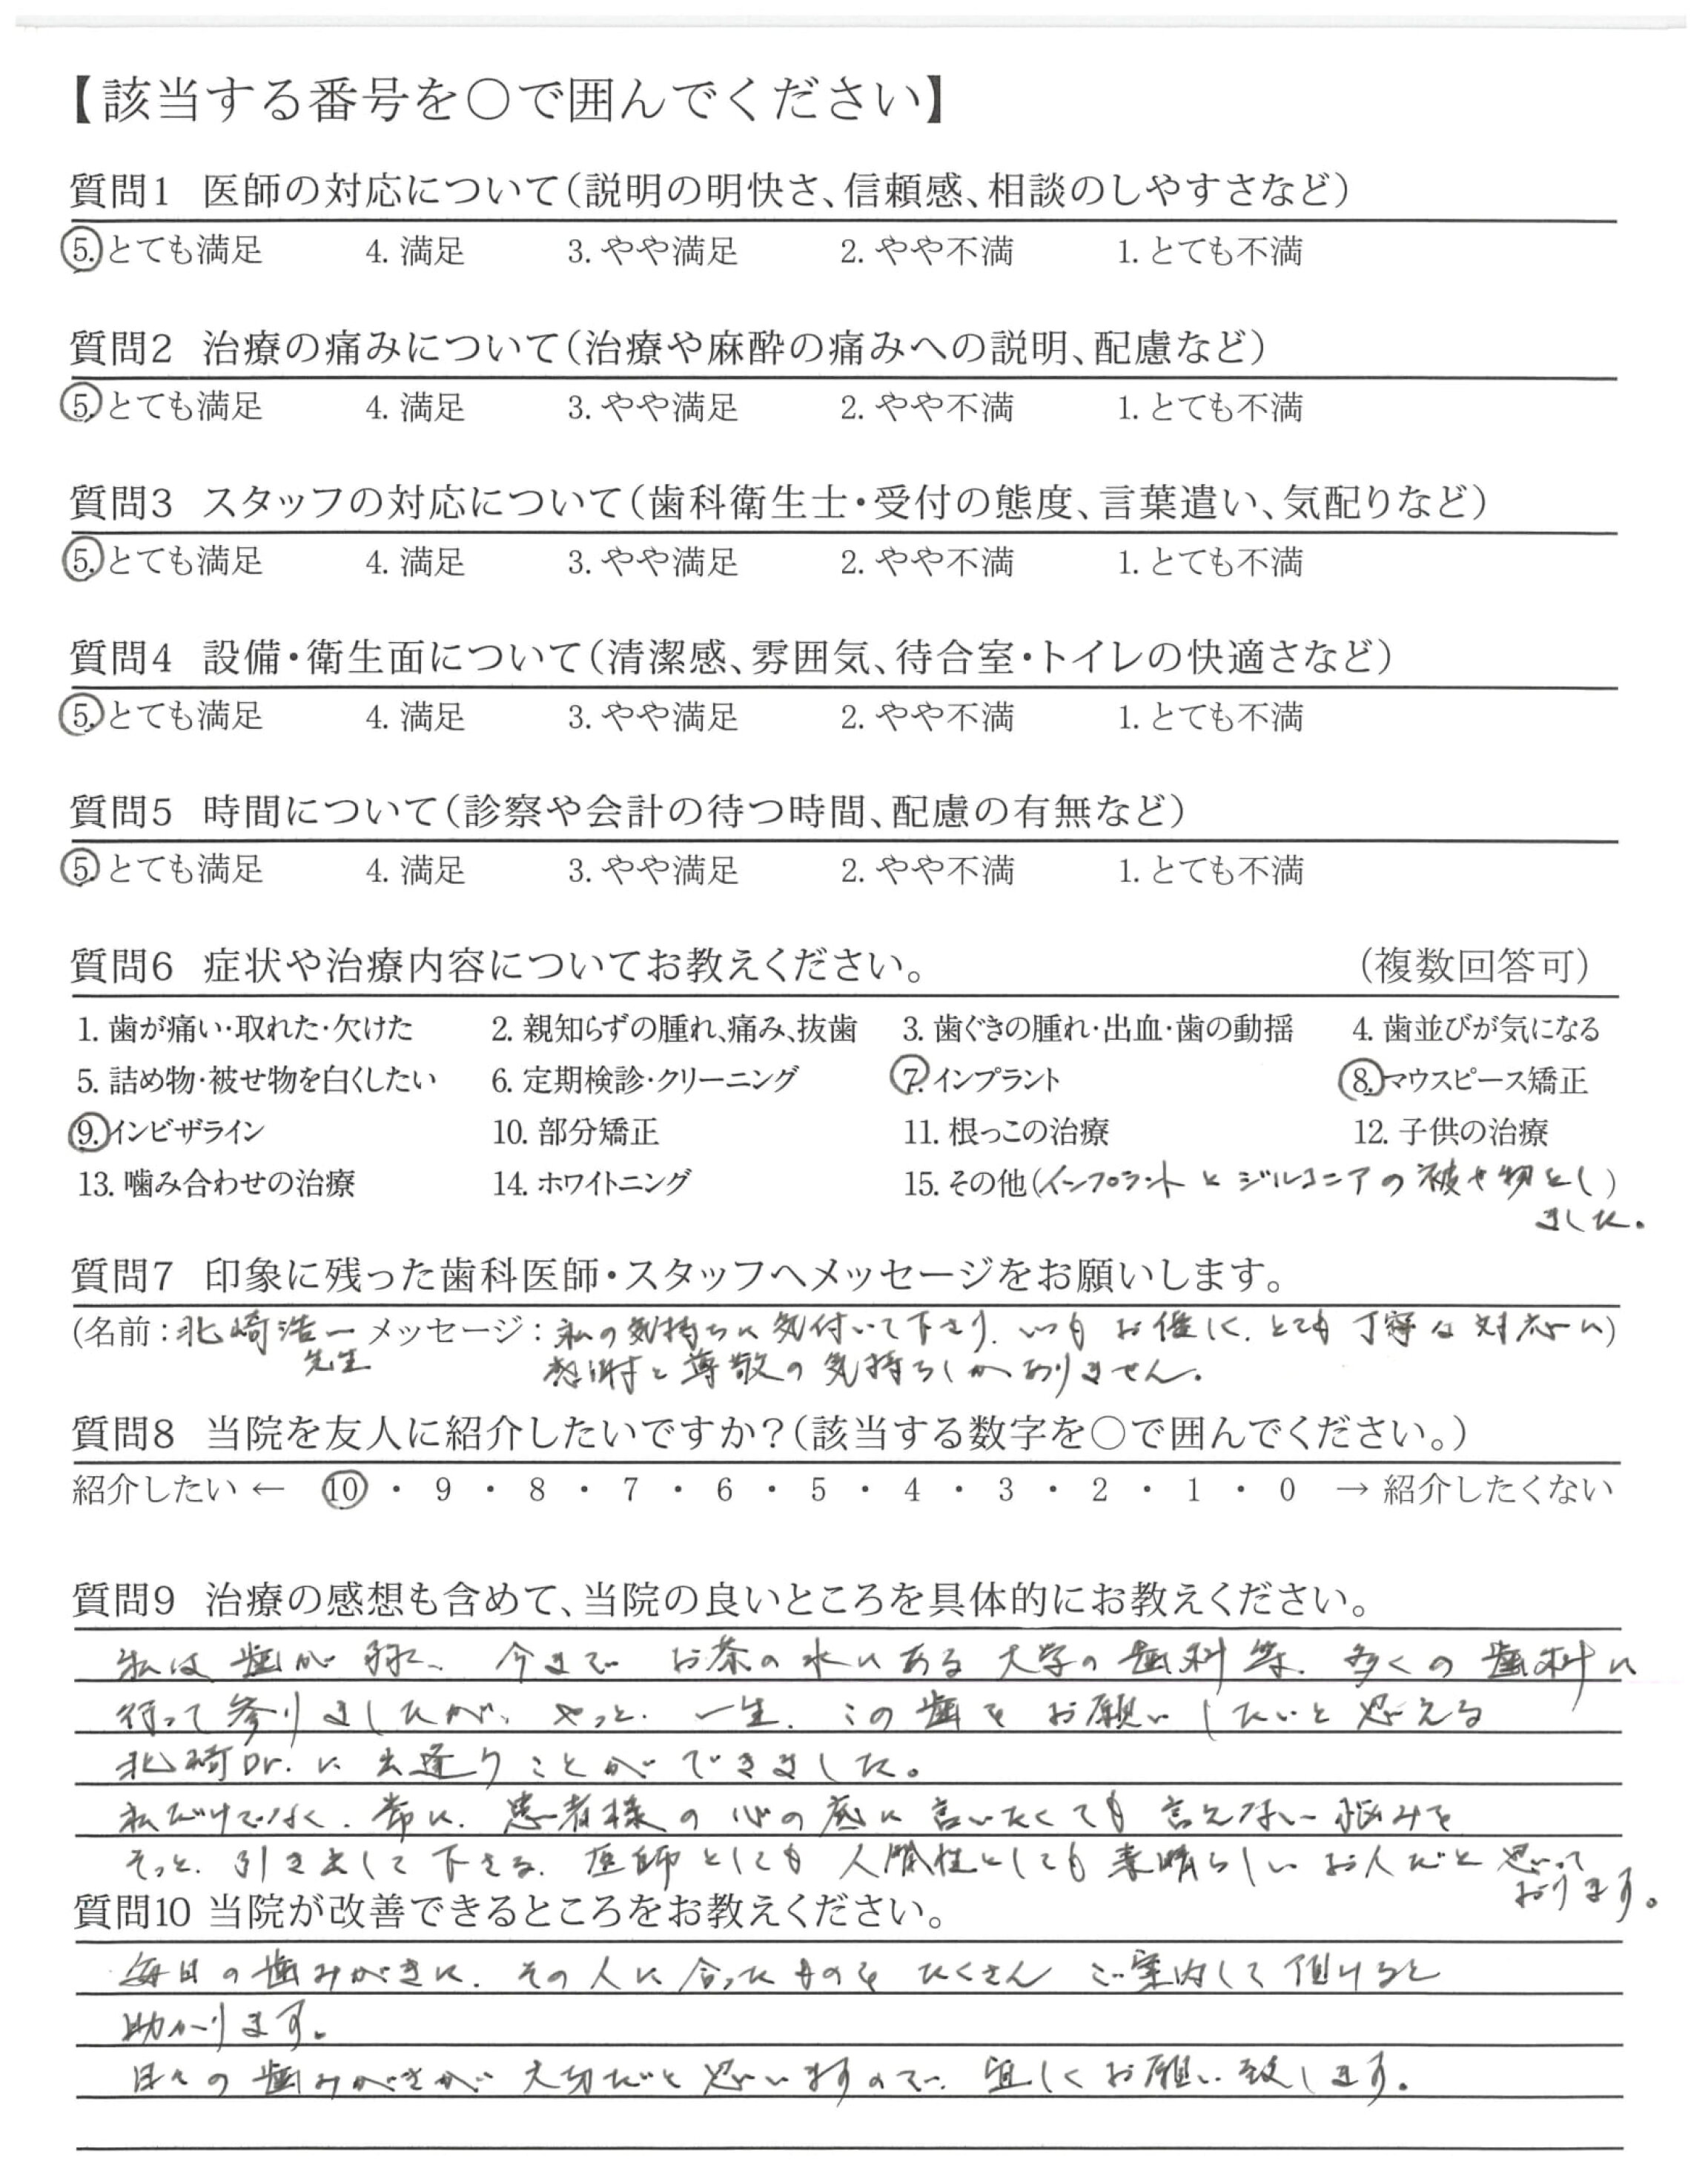 【該当する番号を〇で囲んでください】
質問1 医師の対応について(説明の明快さ、信頼感、相談のしやすさなど)
5. とても満足 4. 満足 3. やや満足 2. やや不満 1. とても不満
質問2 治療の痛みについて(治療や麻酔の痛みへの説明、配慮など)
5. とても満足 4. 満足 3. やや満足 2. やや不満 1. とても不満
質問3 スタッフの対応について(歯科衛生士・受付の態度、言葉遣い、気配りなど)
5. とても満足 4. 満足 3. やや満足 2. やや不満 1. とても不満
質問4 設備・衛生面について(清潔感、雰囲気、待合室・トイレの快適さなど)
5. とても満足 4. 満足 3. やや満足 2. やや不満 1. とても不満
質問5 時間について(診察や会計の待つ時間、配慮の有無など)
5. とても満足 4. 満足 3. やや満足 2. やや不満 1. とても不満
質問6 症状や治療内容についてお教えください。 (複数回答可)
1. 歯が痛い・取れた・欠けた 2. 親知らずの腫れ、痛み、抜歯 3. 歯ぐきの腫れ・出血・歯の動揺 4. 歯並びが気になる
5. 詰め物・被せ物を白くしたい 6. 定期検診・クリーニング 7. インプラント 8. マウスピース矯正
9. インビザライン 10. 部分矯正 11. 根っこの治療 12. 子供の治療
13. 噛み合わせの治療 14. ホワイトニング 15. その他(インプラントとジルコニアの被せ物をし)
ました。
質問7 印象に残った歯科医師・スタッフへメッセージをお願いします。
(名前:北崎浩一 メッセージ:私の気持ちに気付いて下さり、いつもお優しく、とても丁寧な対応に)
先生 感謝と尊敬の気持ちしかありません。
質問8 当院を友人に紹介したいですか?(該当する数字を〇で囲んでください。)
紹介したい ← 10 ・ 9 ・ 8 ・ 7 ・ 6 ・ 5 ・ 4 ・ 3 ・ 2 ・ 1 ・ 0 → 紹介したくない
質問9 治療の感想も含めて、当院の良いところを具体的にお教えください。
私は歯が弱く、今までお茶の水にある大学の歯科等、多くの歯科に
行って参りましたが、やっと、一生、この歯をお願いしたいと思える
北崎Dr.に出逢うことができました。
私だけでなく、常に、患者様の心の底に言いたくても言えない悩みを
そっと、引き出して下さる、医師としても人間性としても素晴らしいお人だと思って
おります。
質問10 当院が改善できるところをお教えください。
毎日の歯みがきに、その人に合ったものをたくさんご案内して頂けると
助かります。
日々の歯みがきが大切だと思いますので、宜しくお願い致します。